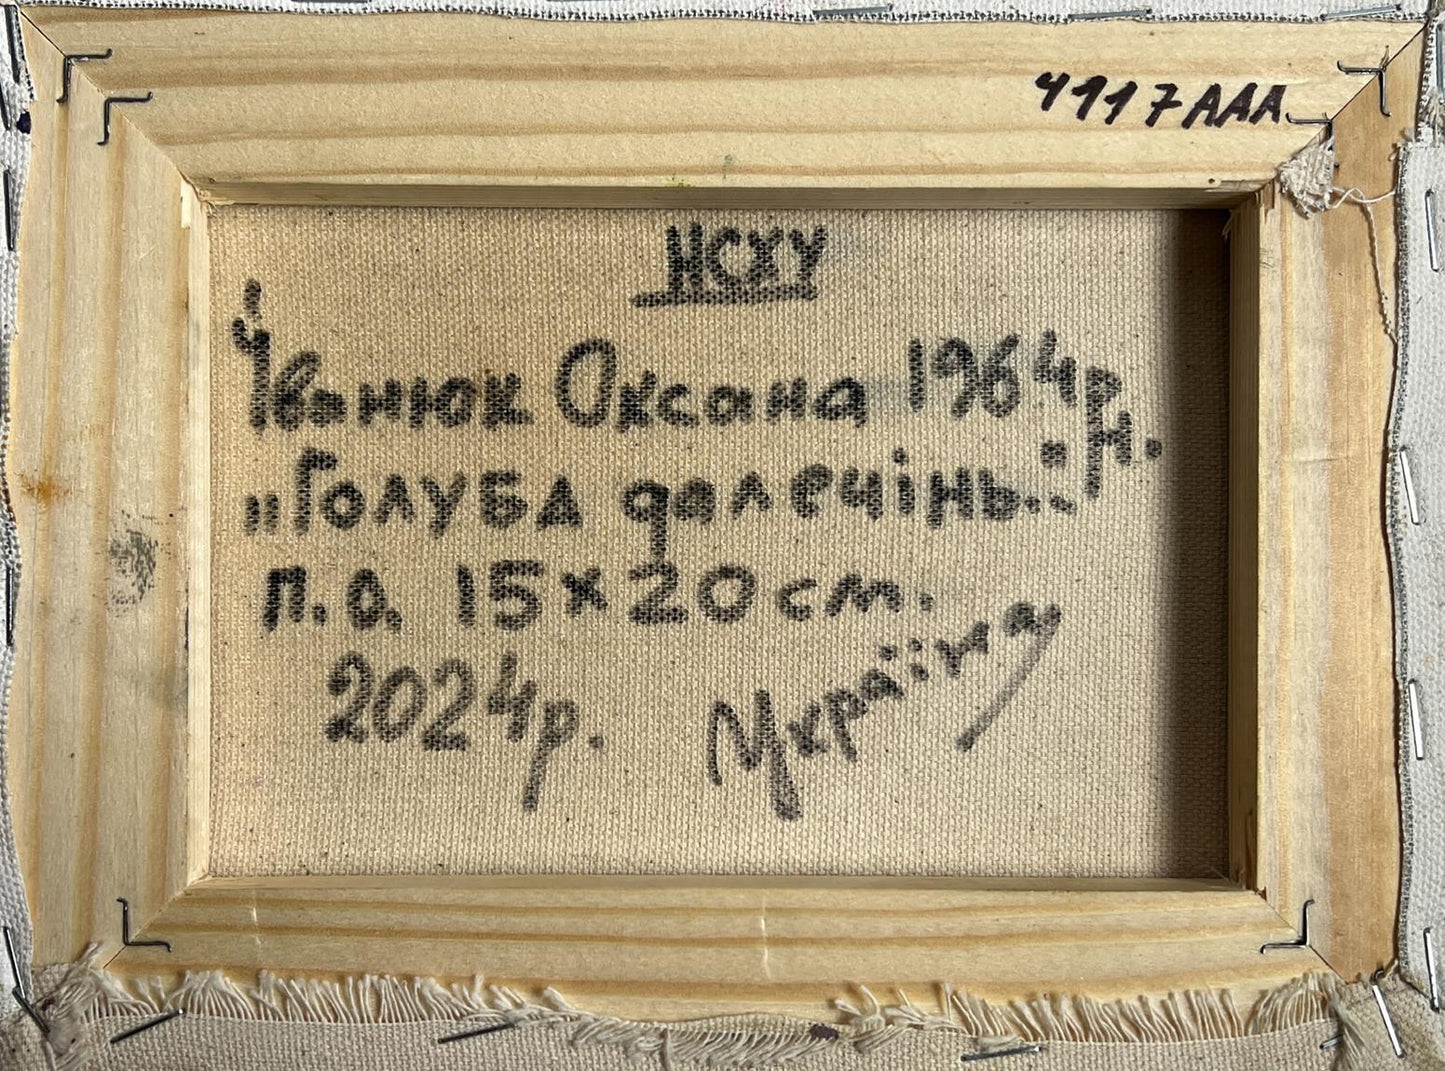 4117AAA.
НСХУ
Іванюк Оксана 1964р.н.
„Голуба далечінь".
п.о. 15×20 см.
2024р. Україна